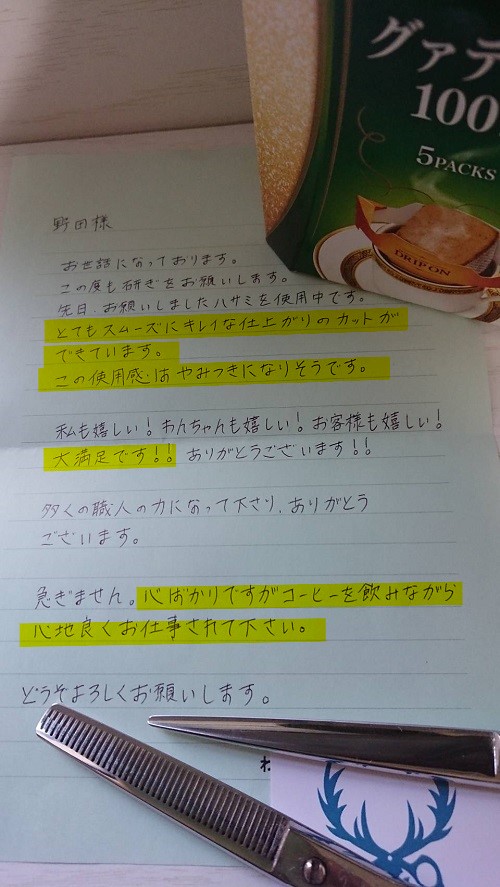 グァテ
100
5PACKS
DRIP ON
野田様
お世話になっております。
この度も研ぎをお願いします。
先日、お願いしましたハサミを使用中です。
とてもスムーズにキレイな仕上がりのカットが
できています。
この使用感はやみつきになりそうです。
私も嬉しい!わんちゃんも嬉しい!お客様も嬉しい!
大満足です!!ありがとうございます!!
多くの職人の力になって下さり、ありがとう
ございます。
急ぎません。心ばかりですがコーヒーを飲みながら
心地良くお仕事されて下さい。
どうぞよろしくお願いします。